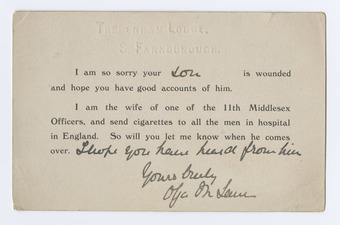 Tredenham Lodge,
S. Farnborough.
I am so sorry your son is wounded
and hope you have good accounts of him.
I am the wife of one of the 11th Middlesex
Officers, and send cigarettes to all the men in hospital
in England. So will you let me know when he comes
over. I hope you have heard from him
Yours truly
Olga